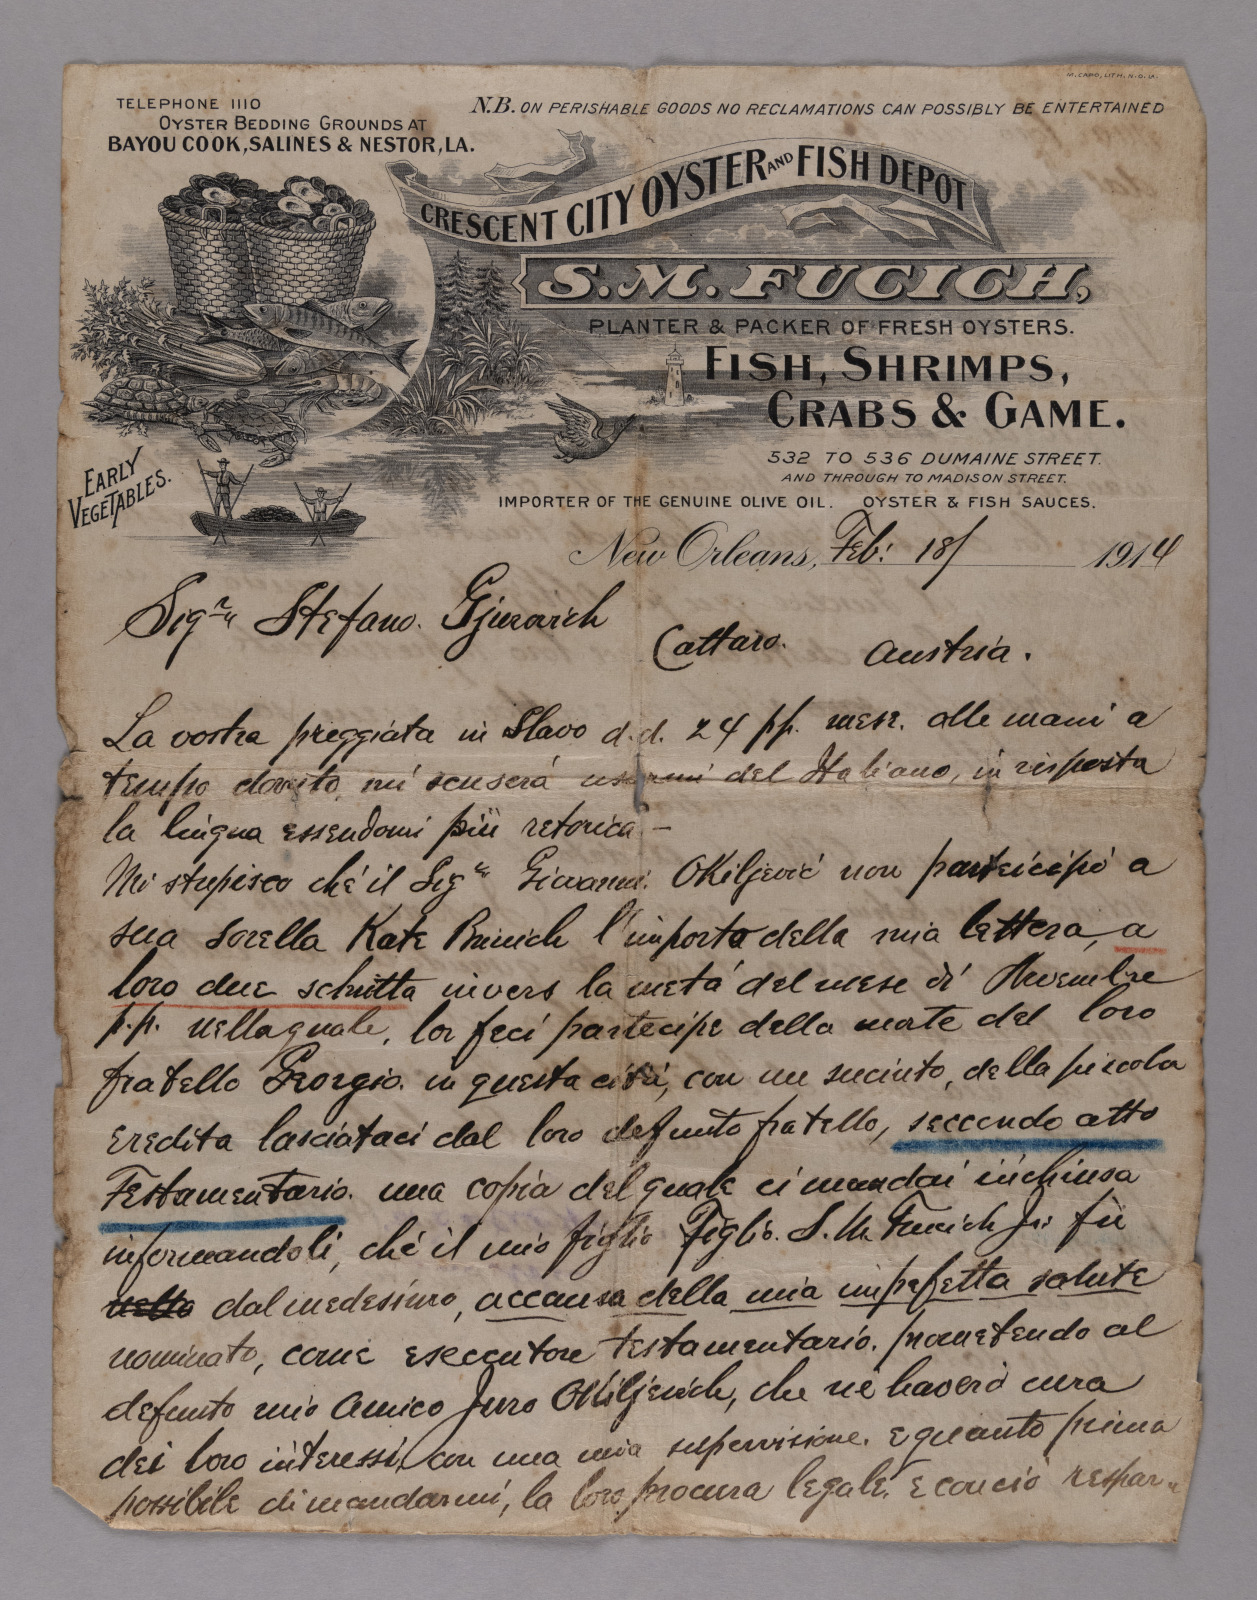 M. CAPO, LITH. N.O. LA.
TELEPHONE 1110
OYSTER BEDDING GROUNDS AT
BAYOU COOK, SALINES & NESTOR, LA.
N.B. ON PERISHABLE GOODS NO RECLAMATIONS CAN POSSIBLY BE ENTERTAINED
CRESCENT CITY OYSTER AND FISH DEPOT
S. M. FUCICH,
PLANTER & PACKER OF FRESH OYSTERS.
FISH, SHRIMPS,
CRABS & GAME.
532 TO 536 DUMAINE STREET.
AND THROUGH TO MADISON STREET.
EARLY
VEGETABLES.
IMPORTER OF THE GENUINE OLIVE OIL. OYSTER & FISH SAUCES.
New Orleans, Feb: 18/ 1914
Sigre Stefano. Gjurovich
Cattaro. Austria.
La vostra preggiata in Slavo d.d. 24 pp. mese. alle mani a
tempo dovuto, mi scuserà del Italiano, in risposta
la lingua essendomi più retorica –
Mi stupisco ché il Sigre Giovanni. Okiljević non parteicipò a
sua Sorella Kate l'importo della mia lettera, a
loro due schritta invers la metá del mese di Novembre
p.p. nella quale, lor feci partecipe della morte del loro
fratello Georgio. in questa città, con un sucinto, della piccola
eredita lasciataci dal loro defunto fratello, seccondo atto
Testamentario. una copia del quale ci mandai inchiusa
informandoli, ché il mio figlio Figlio. S. M. Fucich Jr: fù
dal medesimo, accausa della mia impefetta salute
nominato, come eseccutore testamentario. prometendo al
defunto mio Amico Juro Okiljevich, che nè haverò cura
dei loro interessi, con una mia supervisione. e quanto prima
possibile dimandarmi, la loro procura legale. e conciò respar-